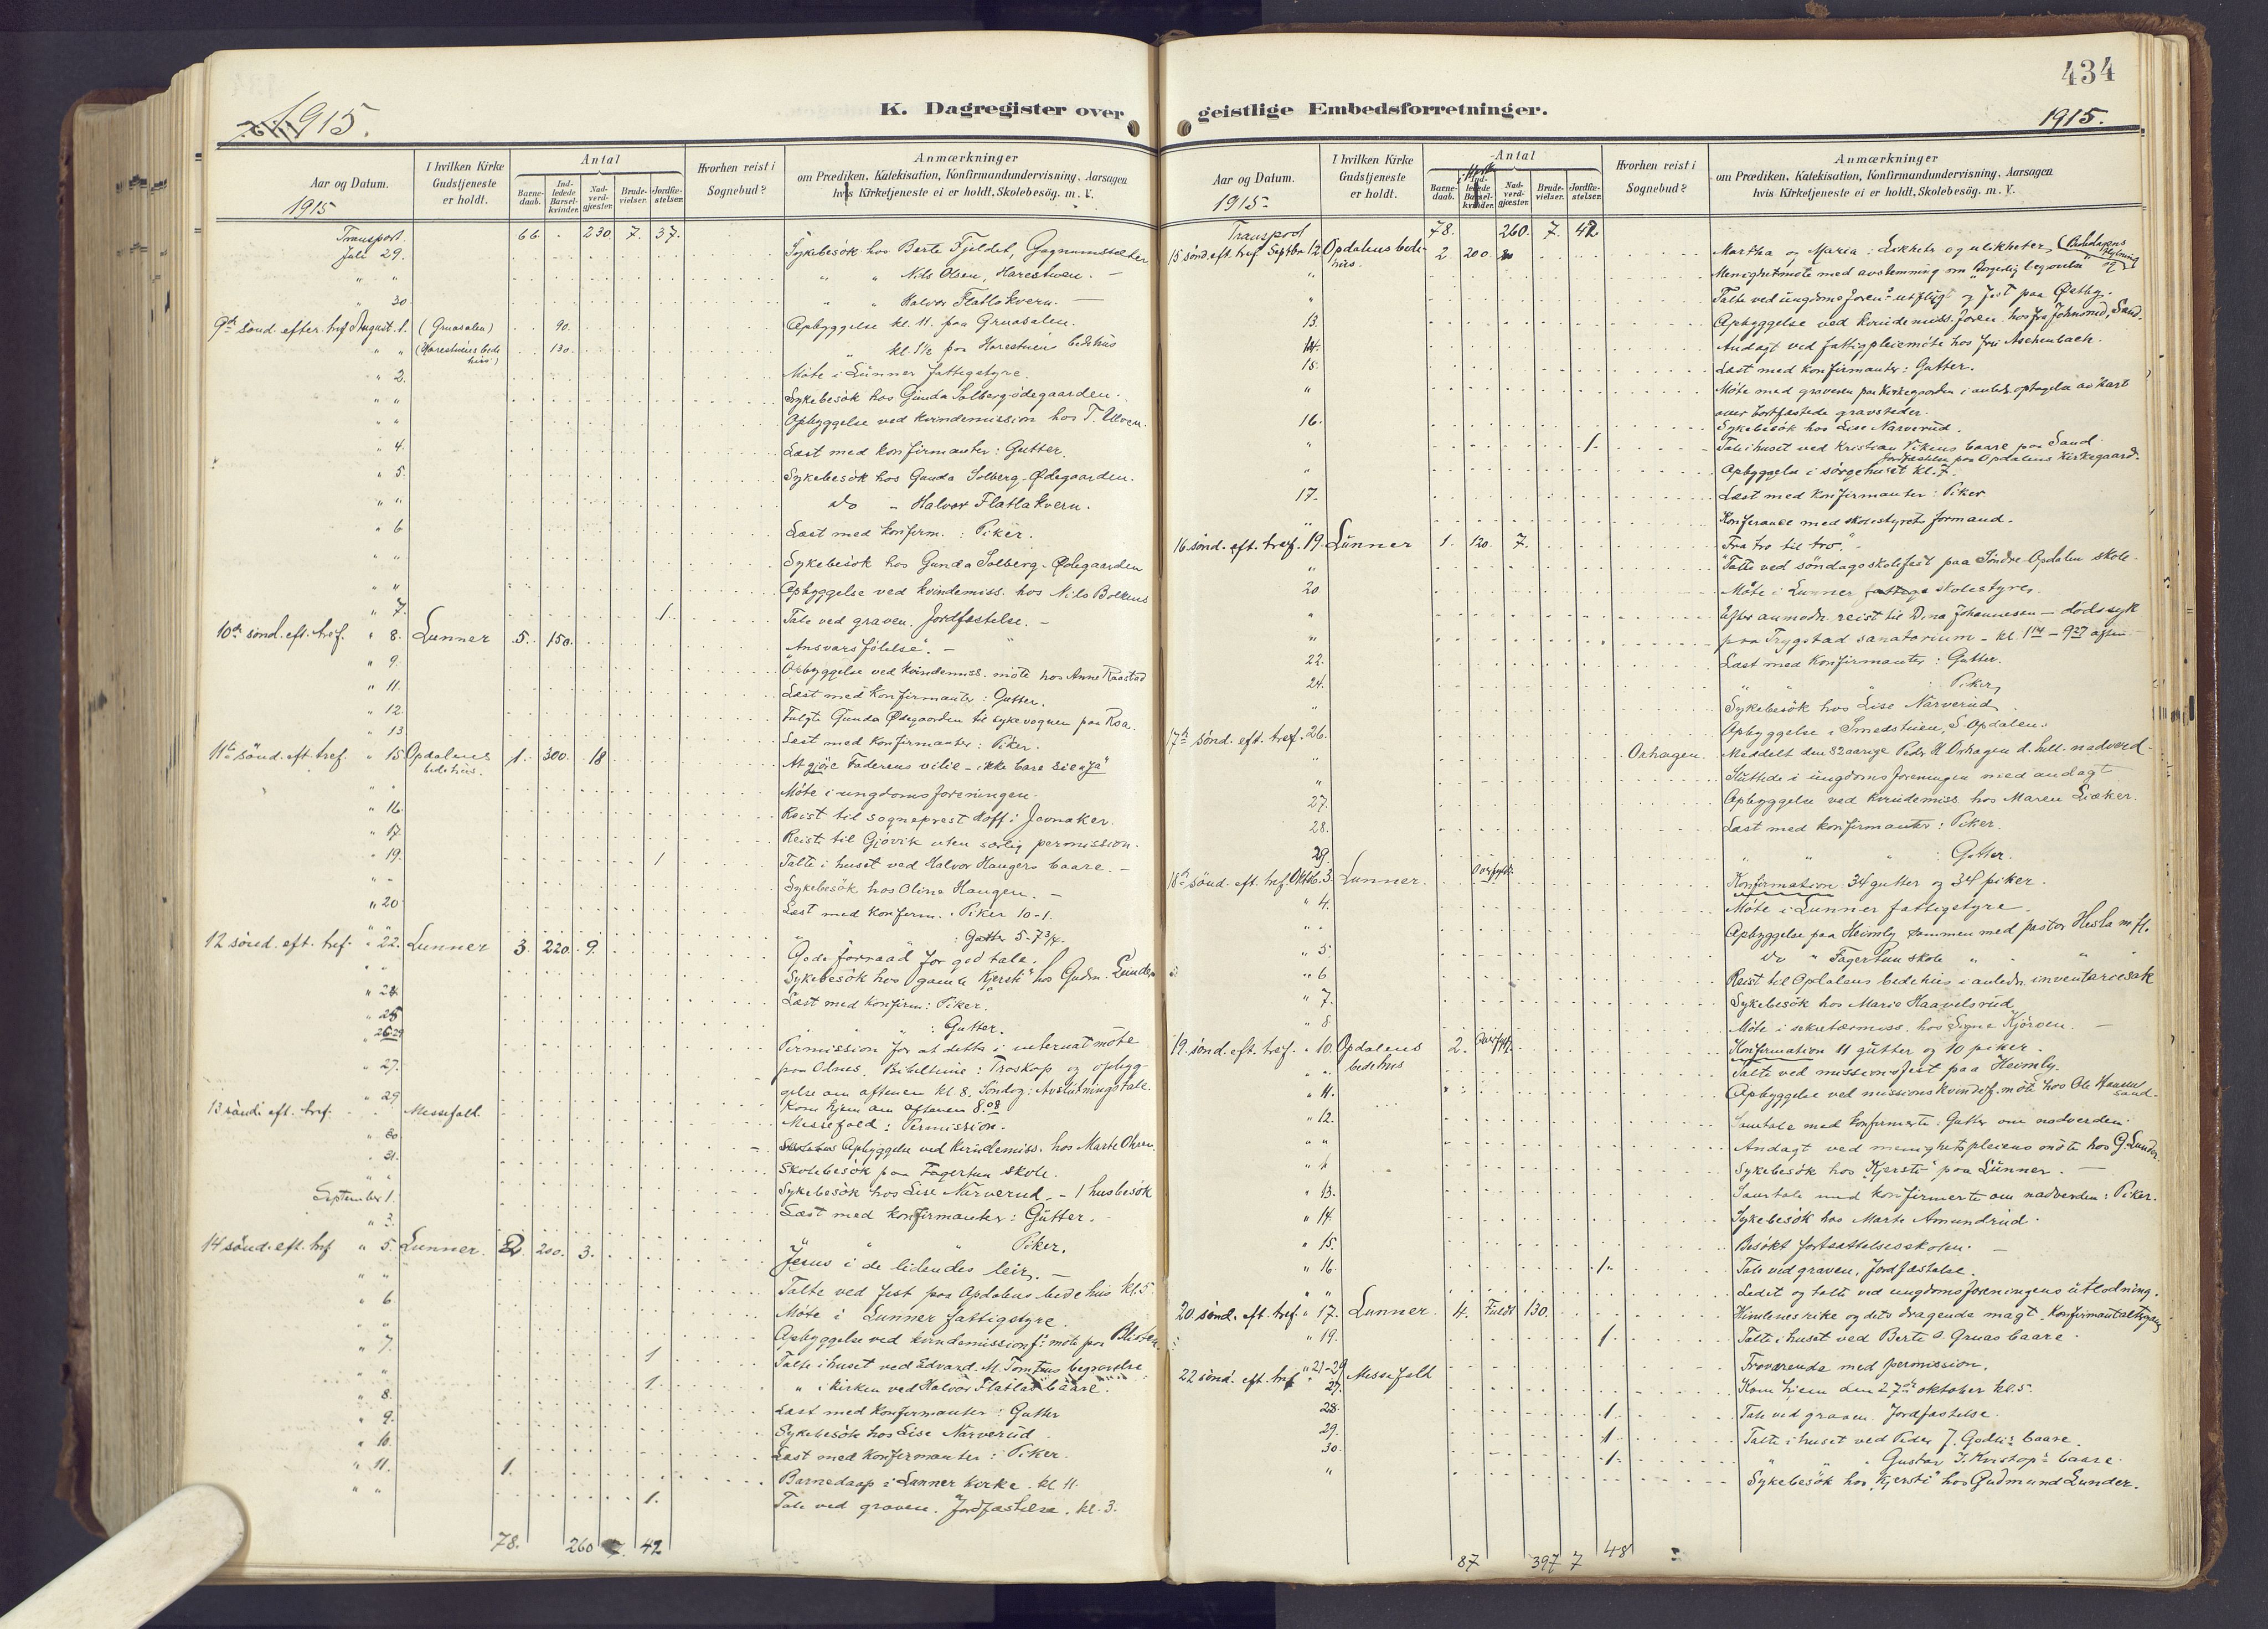 1915.
K. Dagregister over
Aar og Datum.
1915
I hvilken Kirke Gudstjeneste er holdt.
Antal
Barnedaab.
Indledede Barselkvinder.
Nadverdgjæster.
Brudevielser.
Jordfæstelser.
Hvorhen reist i Sognebud?
Anmærkninger
om Prædiken, Katekisation, Konfirmandundervisning, Aarsagen
hvis Kirketjeneste ei er holdt, Skolebesög. m. V.
Transport. 66. . 230. 7. 37.
Juli 29. Sykebesök hos Berte Fjeldet, Gagnumsæter
" " " " Nils Olsen, Harestuen. —
" 30 " " Halvor Flatlakvern. —
9de sönd. efter tref August 1. (Gruasalen) 90. Opbyggelse kl. 11. paa Gruasalen.
" " (Harestuens bedehus) 130. " kl. 1½ paa Harestuen bedehus
" 2. Möte i Lunner fattigstyre.
" " Sykebesök hos Gunda Solberg-ödegaarden.
" " Opbyggelse ved kvindemission hos T. Ulven.
" 4. Læst med konfirmanter: Gutter.
" 5. Sykebesök hos Gunda Solberg-Ødegaarden.
" " do - Halvor Flatlakvern.
" 6 Læst med konfirm.: Piker.
" " Sykebesök hos Gunda Solberg-Ødegaarden
" " Opbyggelse ved kvindemiss. hos Nils Bolkens
" 7. 1. Tale ved graven. Jordfæstelse. —
10de sönd. eft. tref. " 8. Lunner 5. 150. "Ansvarsfölelse". —
" 9. Opbyggelse ved kvindemiss. möte hos Anne Raastad
" 11. Læst med konfirmanter: Gutter.
" 12. Fulgte Gunda Ødegaarden til sykevognen paa Roa.
" 13 Læst med konfirmanter: Piker.
11te sönd. eft. tref. " 15 Opdalens bedehus. 1. 300. 18 At gjöre Faderens vilie – ikke bare sie "Ja"
" " Möte i ungdomsforeningen.
" 16. Reist til sogneprest Hoff i Jevnaker.
" 17. Reist til Gjövik uten særlig permission.
" 19. 1 Talte i huset ved Halvor Haugens baare. —
" " Sykebesök hos Olina Haugen. —
" 20 Læst med konfirm.: Piker 10-1.
" " " : Gutter 5-7¾.
12 sönd. eft. tref. " 22. Lunner 3. 220. 9. Gode forraad for god tale.
" " Sykebesök hos gamle "Kjersti" hos Gudm. Lunder
" 24. Læst med konfirm: Piker.
" 25 " " : Gutter.
" 26-29 Permission for at delta i internatmöte
" 27. paa Olnes. Bibeltime: Troskap og opbyg-
gelse om aftenen kl. 8. Söndag: Avslutningstale.
" 29 Kom hjem om aftenen 8.08
13 sönd. eft. tref. Messefald. Messefald: Permission.
" 30 Opbyggelse ved kvindemiss. hos Marte Ohren.
" 31. Skolebesök paa Fagertun skole.
September 1. Sykebesök hos Lise Narverud. – 1 husbesök
" 3. Læst med konfirmanter: Gutter.
" " " Piker.
14 sönd. eft. tref " 5. Lunner. 2 200. 3. Jesus i de lidendes leir. —
" " Talte ved fest paa Opdalens bedehus kl. 5.
" 6. Möte i Lunner fattigstyre.
" " Opbyggelse ved kvindemissionsf. möte paa
" 7. 1 Talte i huset ved Edvard M. Tomtens begravelse
" " 1. " i kirken ved Halvor Flatlas baare.
" 8. Læst med konfirmanter: Gutter
" 9. Sykebesök hos Lise Narverud.
" 10. Læst med konfirmanter: Piker.
" 11. 1. Barnedaap i Lunner kirke. kl 11.
" " 1. Tale ved graven. Jordfæstelse. kl. 3.
78. 260 7. 42
434
geistlige Embedsforretninger.
1915.
Aar og Datum.
1915
I hvilken Kirke Gudstjeneste er holdt.
Antal
Barnedaab.
Indledede Barselkvinder.
Nadverdgjæster.
Brudevielser.
Jordfæstelser.
Hvorhen reist i Sognebud?
Anmærkninger
om Prædiken, Katekisation, Konfirmandundervisning, Aarsagen
hvis Kirketjeneste ei er holdt, Skolebesög. m. V.
Transport 78. 260. 7. 42
15 sönd. eft. tref. Septbr 12 Opdalens bedehus. 2 200 Martha og Maria: Likheter og ulikheter.
" Menighetsmöte med avstemning om "Borgerlig begravelse"
" Talte ved ungdomsforen.s utflugt og fest paa Østby.
13. Opbyggelse ved kvindemiss.foren. hos fra Johnsrud, Sand.
14. Andagt ved fattigpleiemöte hos fru Aschenbach.
15. Læst med konfirmanter: Gutter.
" Möte med graveren paa kirkegaarden i anledn. optagelse av kart
over bortfæstede gravsteder.
16. Sykebesök hos Lise Narverud.
" 1. Tale i huset ved Kristian Vikens baare paa Sand.
Jordfæstelse paa Opdalens kirkegaard.
" Opbyggelse i sörgehuset kl. 7.
17. Læst med konfirmanter: Piker
" Konferance med skolestyrets formand.
16 sönd. eft. tref. 19. Lunner 1. 120. 7. "Fra tro til tro." -
" Talte ved söndagsskolefest paa Söndre Opdalen skole.
20 Möte i Lunner skolestyre.
" Efter anmodn. reist til Dina Johannesen – dödssyk
" paa Trygstad sanatorium – kl. 1 – 9.27 aften.
22. Læst med konfirmanter: Gutter.
24. " " " : Piker,
" Sykebesök hos Lise Narverud.
17de sönd. eft. tref. 26. Opbyggelse i Smedstuen, S. Opdalen.
" Orhagen. Meddelt den 82 aarige Peder H. Orhagen d. hell. nadverd.
" Sluttede i ungdomsforeningen med andagt
27. Opbyggelse ved kvindemiss. hos Maren Liaker.
28. Læst med konfirmanter: Piker.
29. " " " : Gutter.
18de sönd. eft. tref. Oktb. 3. Lunner. Overfyldt. Konfirmation: 34 gutter og 34 piker.
" 4. Möte i Lunner fattigstyre.
" " Opbyggelse paa Heimly sammen med pastor Hesla m. fl.
" 5 do " Fagertun skole " " "
" 6 Reist til Opdalens bedehus i anledn. inventariesak
" 7. Sykebesök hos Marie Haavelsrud
" 8 Möte i sekretærmiss. hos Signe Kjörven. —
19. sönd. eft. tref. " 10. Opdalens bedehus 2. Overfyldt. Konfirmation 11 gutter og 10 piker.
" " Talte ved missionsfest paa Heimly.
" 11. Opbyggelse ved missionskvindef. möte hos Ole Hansen Sand.
" 12. Samtale med konfirmerte: Gutter om nadverden.
" " Andagt ved menighetspleiens möte hos G. Lunder.
" " Sykebesök hos "Kjersti" paa Lunner. —
" 13. Samtale med konfirmerte om nadverden: Piker.
" 14. Sykebesök hos Marte Amundrud.
" 15. Besökt fortsættelsesskolen. —
" 16. 1. Tale ved graven. Jordfæstelse.
" " Ledet og talte ved ungdomsforeningens utlodning.
20 sönd. eft. tref. " 17. Lunner. 4. Fuldt 130. Himlenes rike og dets dragende magt. Konfirmantaltergang
" 19. 1. Talte i huset ved Berte O. Gruas baare.
" 21-29 Fraværende med permission.
22 sönd. eft. tref " 27. Messefald Kom hjem den 27de oktober kl. 5.
28. 1. Tale ved graven. Jordfæstelse.
29. 1. Talte i huset ved Peder J. Godlis baare.
30. 1. " " " Gustav J. Kristop.s baare.
" Sykebesök hos "Kjersti" hos Gudmund Lunder.
87 397 7 48